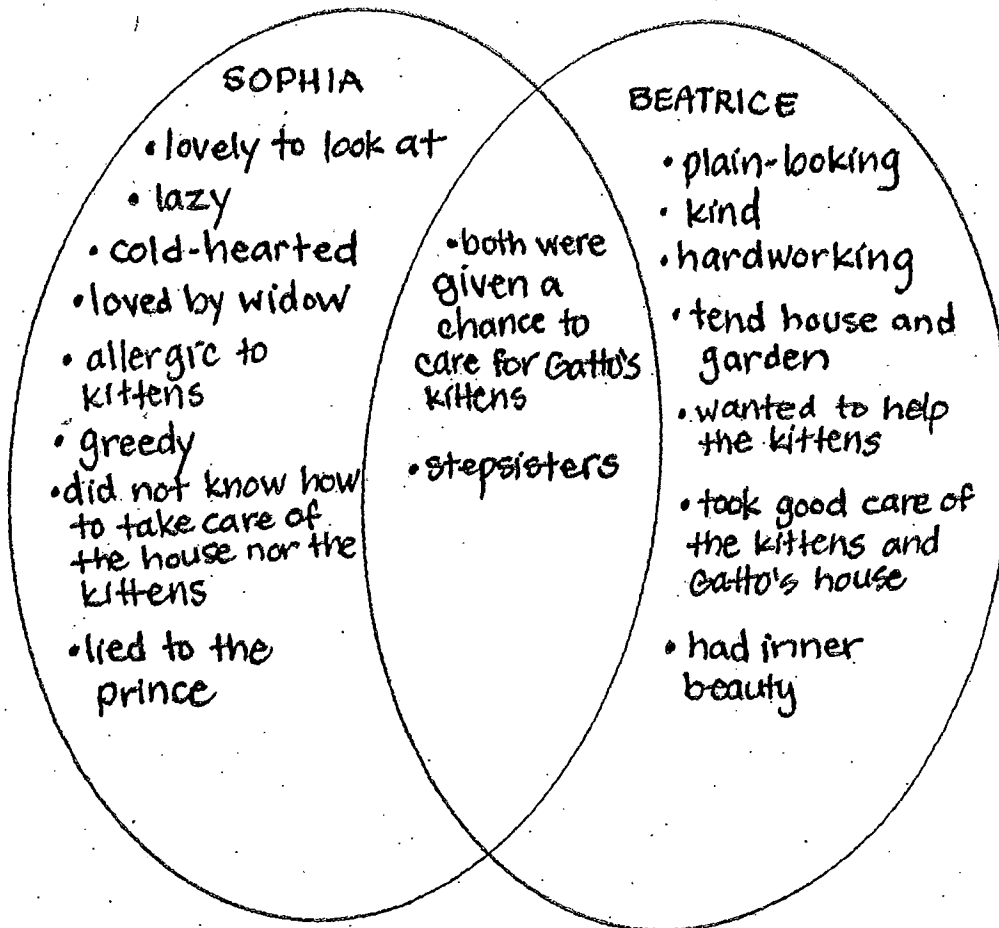 SOPHIA
• lovely to look at
• lazy
• cold-hearted
• loved by widow
• allergic to
kittens
• greedy
• did not know how
to take care of
the house nor the
kittens
• lied to the
prince
• both were
given a
chance to
care for Gatto's
kittens
• stepsisters
BEATRICE
• plain-looking
• kind
• hardworking
• tend house and
garden
• wanted to help
the kittens
• took good care of
the kittens and
Gatto's house
• had inner
beauty